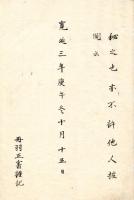 秘之也亦不許他人披
閲云
寛延三年庚午冬十月十五日
丹羽正富謹記